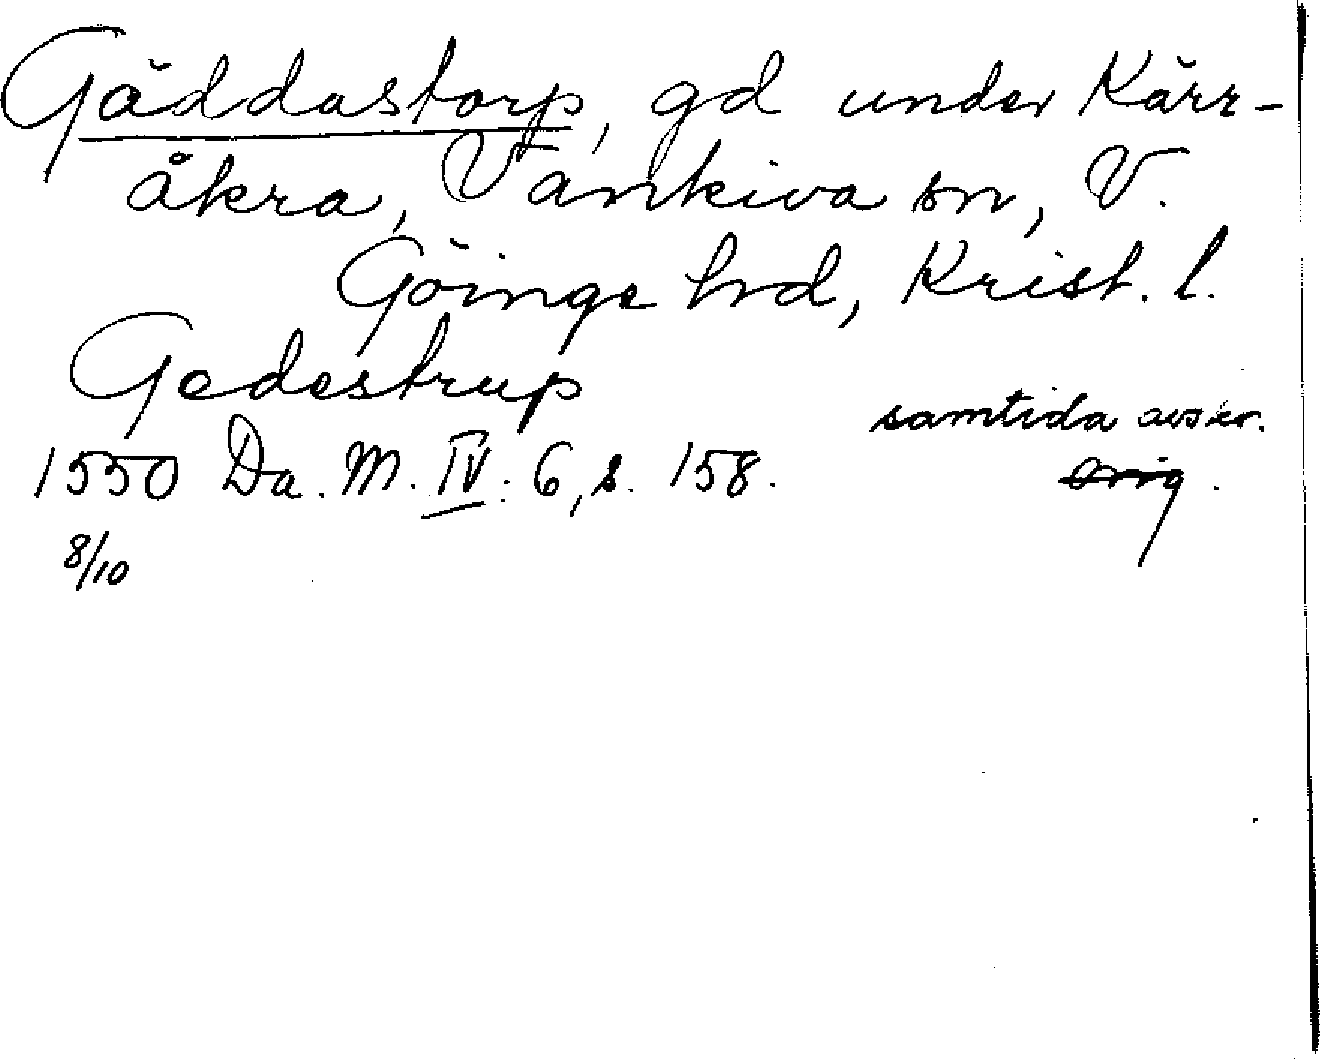 Gäddastorp, gd under Kärr-
åkra, Vankiva sn, V.
Göinge hrd, Krist. l.
Gedestrup
samtida avskr.
1550 Da. M. IV: 6, s. 158. orig.
8/10